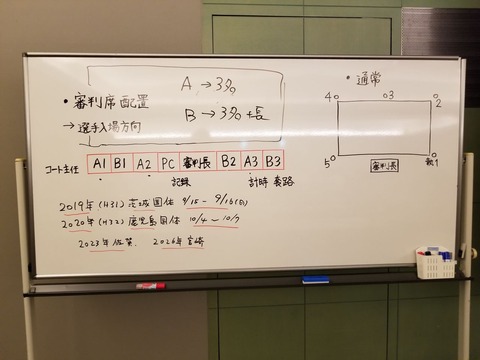 A→3名
・審判席配置
B→3名+長
→選手入場方向
コート主任 A1 B1 A2 PC 審判長 B2 A3 B3
記録 計時 套路
2019年(H31)茨城国体 9/15-9/16(日)
2020年(H32)鹿児島国体 10/4-10/7
2023年佐賀 2026年宮崎
・通常
4 3 2
5 1
審判長